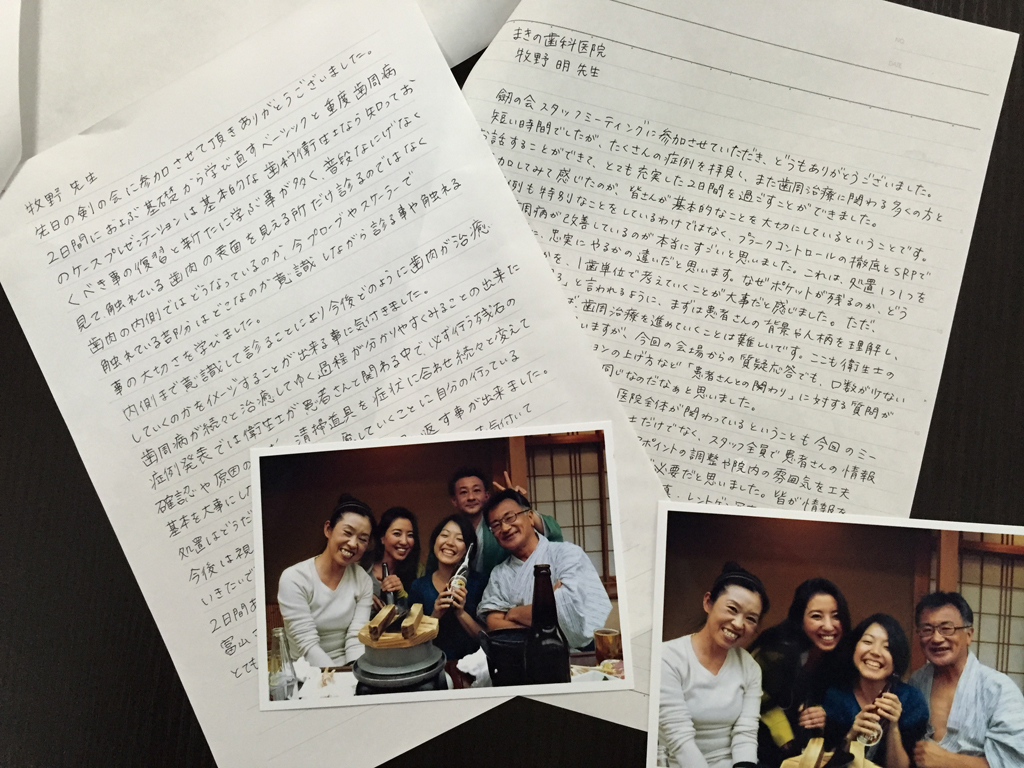 牧野 先生
先日の剣の会に参加させて頂きありがとうございました。
2日間におよぶ基礎から学び直すベーシックと重度歯周病
のケースプレゼンテーションは基本的な歯科衛生士なら知ってお
くべき事の復習と新たに学ぶ事が多く 普段なにげなく
見て触れている歯肉の表面を見える所だけ診るのではなく
歯肉の内側ではどうなっているのか、今プローブやスケーラーで
触れている部分はどこなのか意識しながら診る事や触れる
事の大切さを学びました。
内側まで意識して診ることにより今後どのように歯肉が治癒
していくのかをイメージすることが出来る事に気付きました。
歯周病が続々と治癒してゆく過程が分かりやすくみることの出来た
症例発表では衛生士が患者さんと関わる中で、必ず行う残石の
確認や原因の
清掃道具を症状に合わせ続々と変えて
していくことに自分の行っている
基本を大事にし
返す事が出来ました。
処置はどうだ
今後は視
いきたいで
2日間あ
富山さ
とても
まきの歯科医院
牧野 明 先生
剱の会 スタッフミーティングに参加させていただき、どうもありがとうございました。
短い時間でしたが、たくさんの症例を拝見し、また歯周治療に関わる多くの方と
お話することができて、とても充実した2日間を過ごすことができました。
加してみて感じたのが、皆さんが基本的なことを大切にしているということです。
例も特別なことをしているわけではなく、プラークコントロールの徹底とSRPで
周病が改善しているのが本当にすごいと思いました。これは、処置1つ1つを
に、忠実にやるかの違いだと思います。なぜポケットが残るのか、どう
を、1歯単位で考えていくことが大事だと感じました。ただ、
」と言われるように、まずは患者さんの背景も人柄を理解し、
ば歯周治療を進めていくことは難しいです。ここも衛生士の
いますが、今回の会場からの質疑応答でも、口数が少ない
ションの上げ方など「患者さんとの関わり」に対する質問が
同じなのだなぁと思いました。
医院全体が関わっているということも今回のミー
士だけでなく、スタッフ全員で患者さんの情報
アポイントの調整や院内の雰囲気を工夫
必要だと思いました。皆が情報を